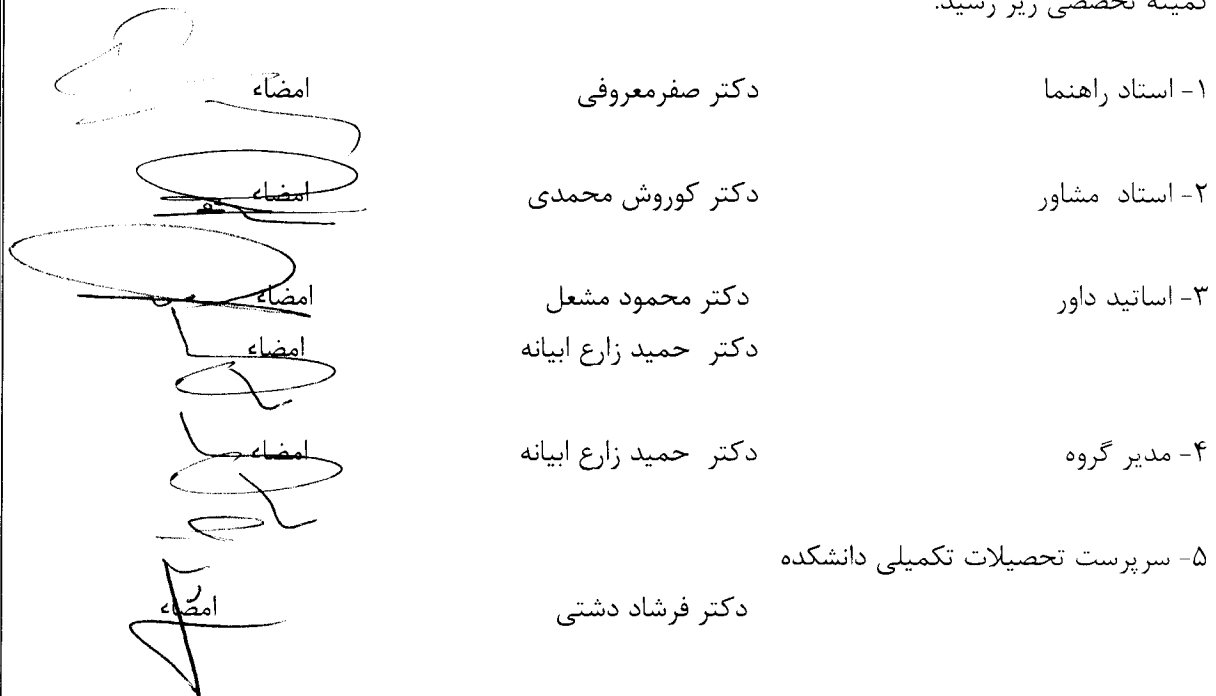 کمیته تخصصی زیر رسید.
۱- استاد راهنما دکتر صفرمعروفی امضاء
۲- استاد مشاور دکتر کوروش محمدی امضاء
۳- اساتید داور دکتر محمود مشعل امضاء
دکتر حمید زارع ابیانه امضاء
۴- مدیر گروه دکتر حمید زارع ابیانه امضاء
۵- سرپرست تحصیلات تکمیلی دانشکده
دکتر فرشاد دشتی امضاء